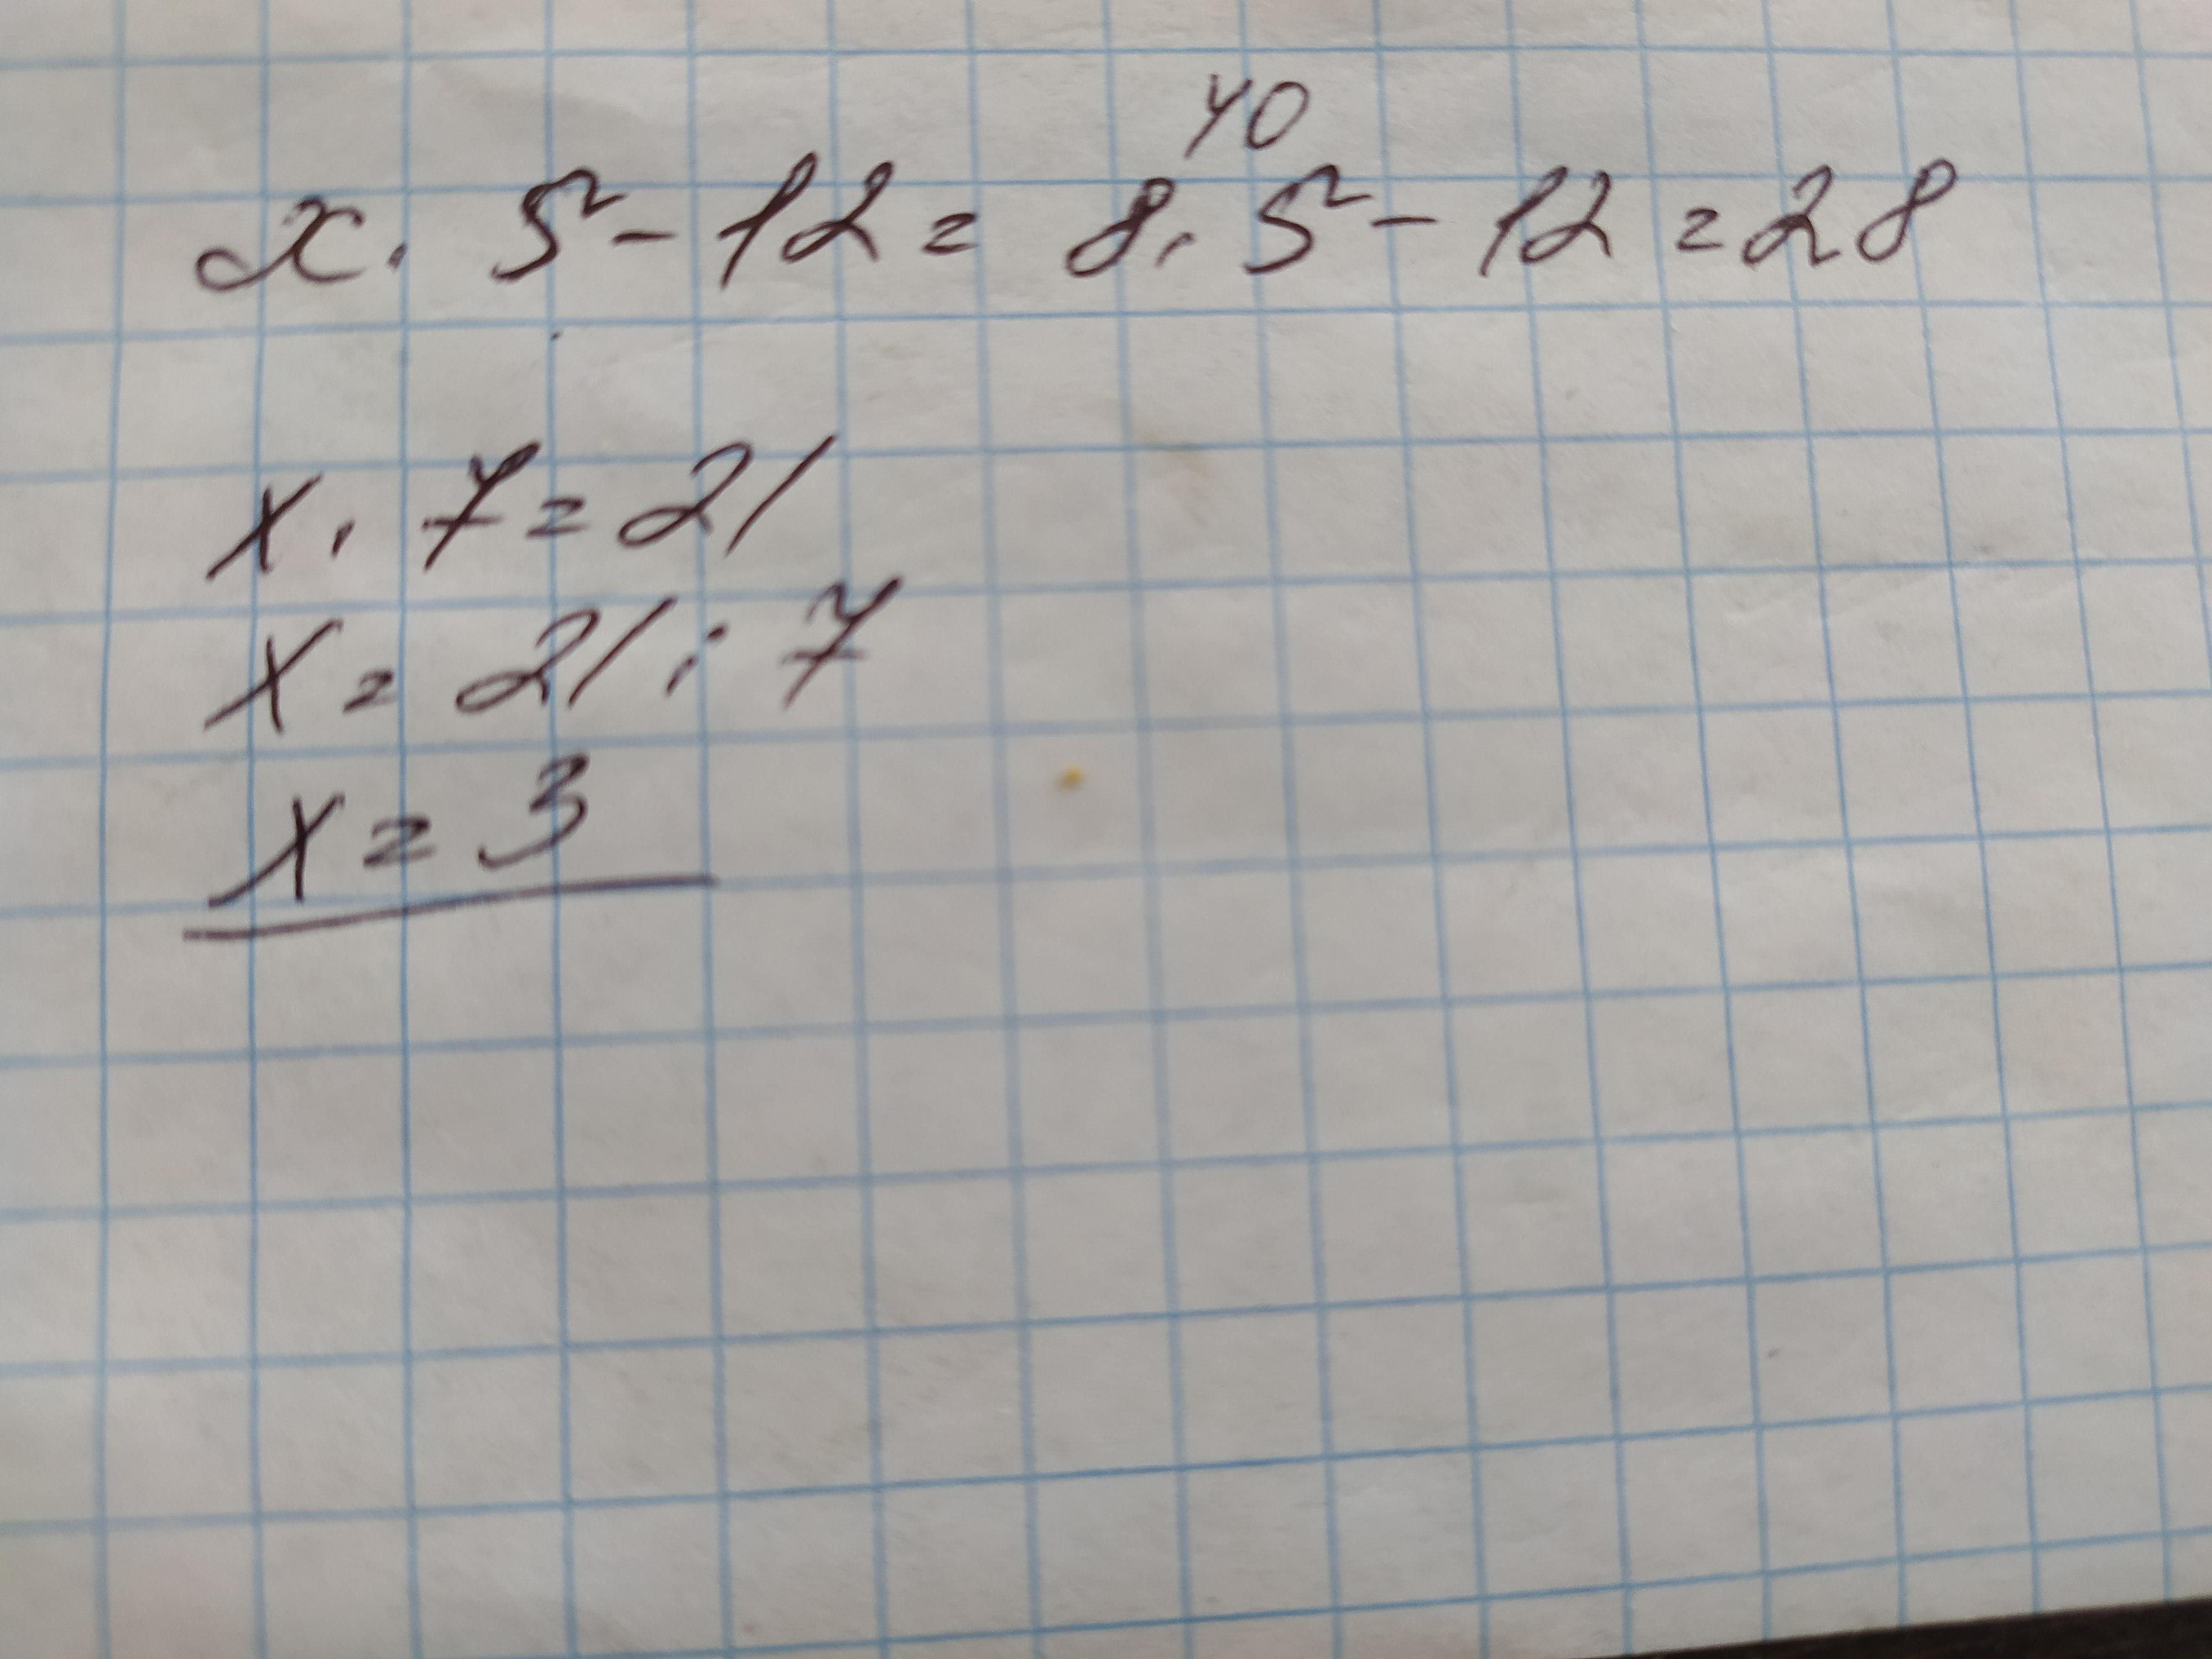 40
x · 5 - 12 = 8 · 5 - 12 = 28
x · 7 = 21
x = 21 : 7
x = 3